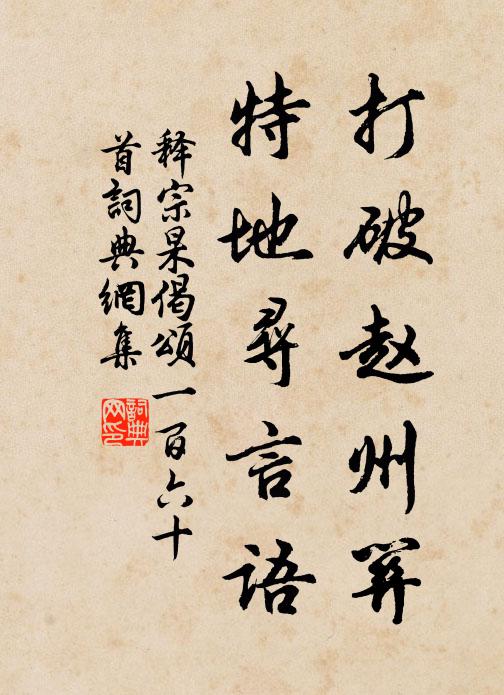 打破赵州关
特地尋言语
释宗杲偈頌一百六十
首詞典網集
詞典
网印